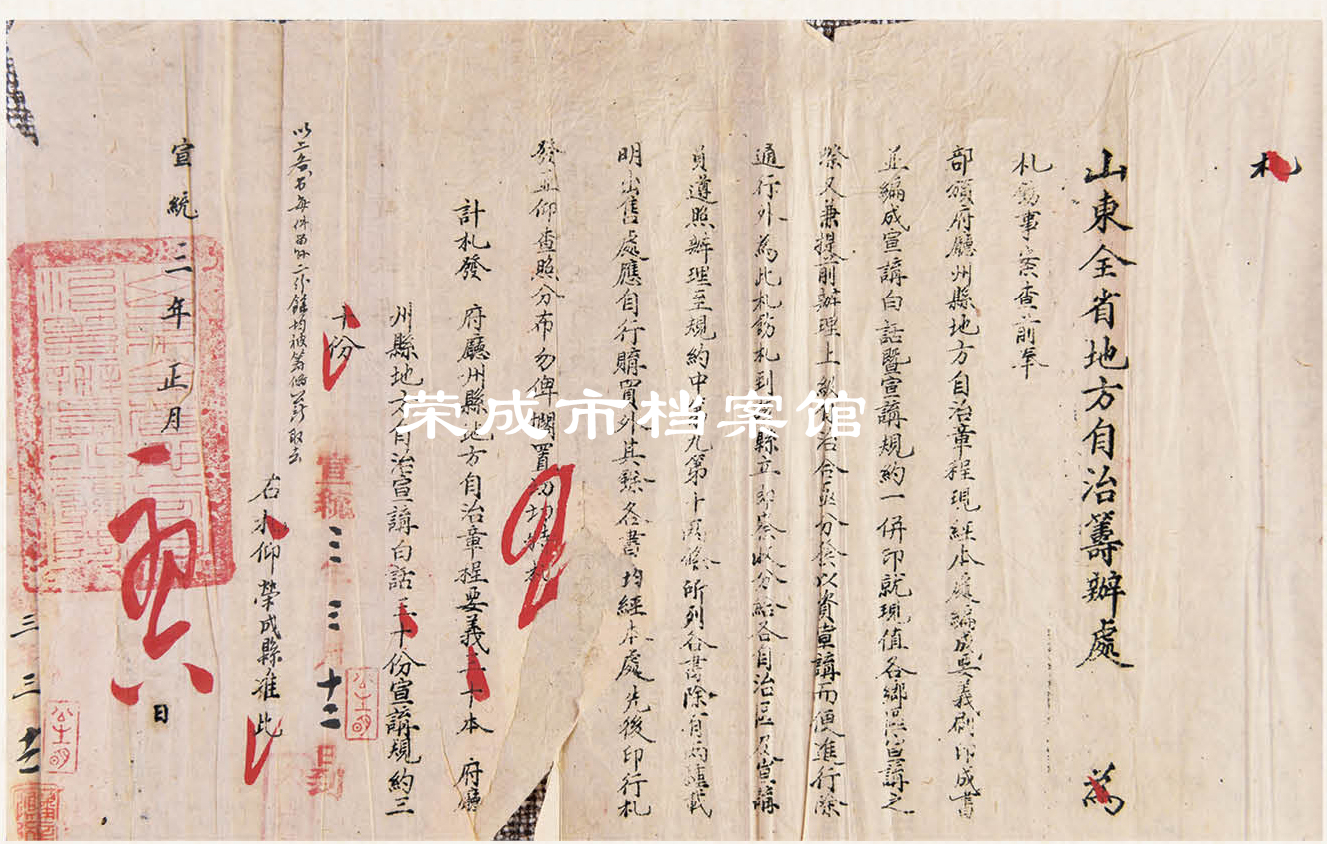 札
山東全省地方自治籌辦處 為
札飭事案查前奉
部頒府廳州縣地方自治章程現經本處編成要義刷印成書
並編成宣講白話暨宣講規約一併印就現值各鄉區宣講之
際又兼提前辦理上級自治合亟分發以資宣講而便進行除
通行外為此札飭札到該縣立即查收分給各自治區及宣講
員遵照辦理至規約中第九第十兩條所列各書除有兩種載
明出售處應自行購買外其餘各書均經本處先後印行札
發並仰查照分布勿俾擱置切切特札
計札發 府廳州縣地方自治章程要義二十本 府廳
州縣地方自治宣講白話三十份宣講規約三
十份
以上各書每件留二分餘均被籌備取去
右札仰榮成縣准此
宣統 三 年 三 月 十二 日到
宣統三年正月 日
三 三 十二
荣成市档案馆